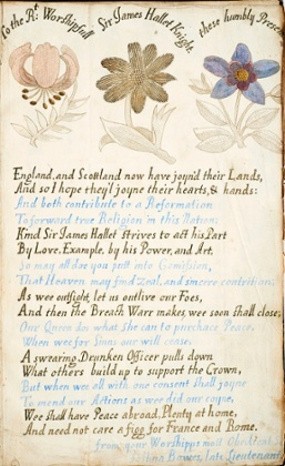 To the Rt. Worshipfull Sir James Hallet Knight, these humbly Presen
England, and Scottland now have joynd their Lands,
And so I hope they'l joyne their hearts, & hands:
And both contribute to a Reformation
To forward true Religion in this Nation;
Kind Sir James Hallet strives to act his Part
By Love, Example, by his Power, and Art,
So may all doe you putt into Comission,
That Heaven may find Zeal, and sincere contrition;
As wee outfight, let us outlive our Foes,
And then the Breath Warr makes, wee soon shall close;
Our Queen dos what She can to purchase Peace,
When wee for Sinns our will cease.
A swearing, Drunken Officer pulls down
What others build up to support the Crown,
But when wee all with one consent shall joyne
To mend our Actions as wee did our coyne,
Wee shall have Peace abroad, Plenty at home,
And need not care a figg for France and Rome.
from your Worshipps most Obedient,
Bowes, late Lieutenant